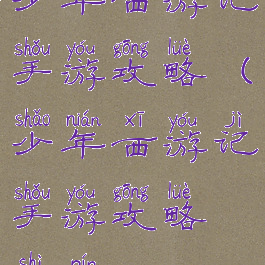 少年西游记
shǒu yóu gōng lüè
手游攻略（
shǎo nián xī yóu jì
少年西游记
shǒu yóu gōng lüè
手游攻略
shì pín